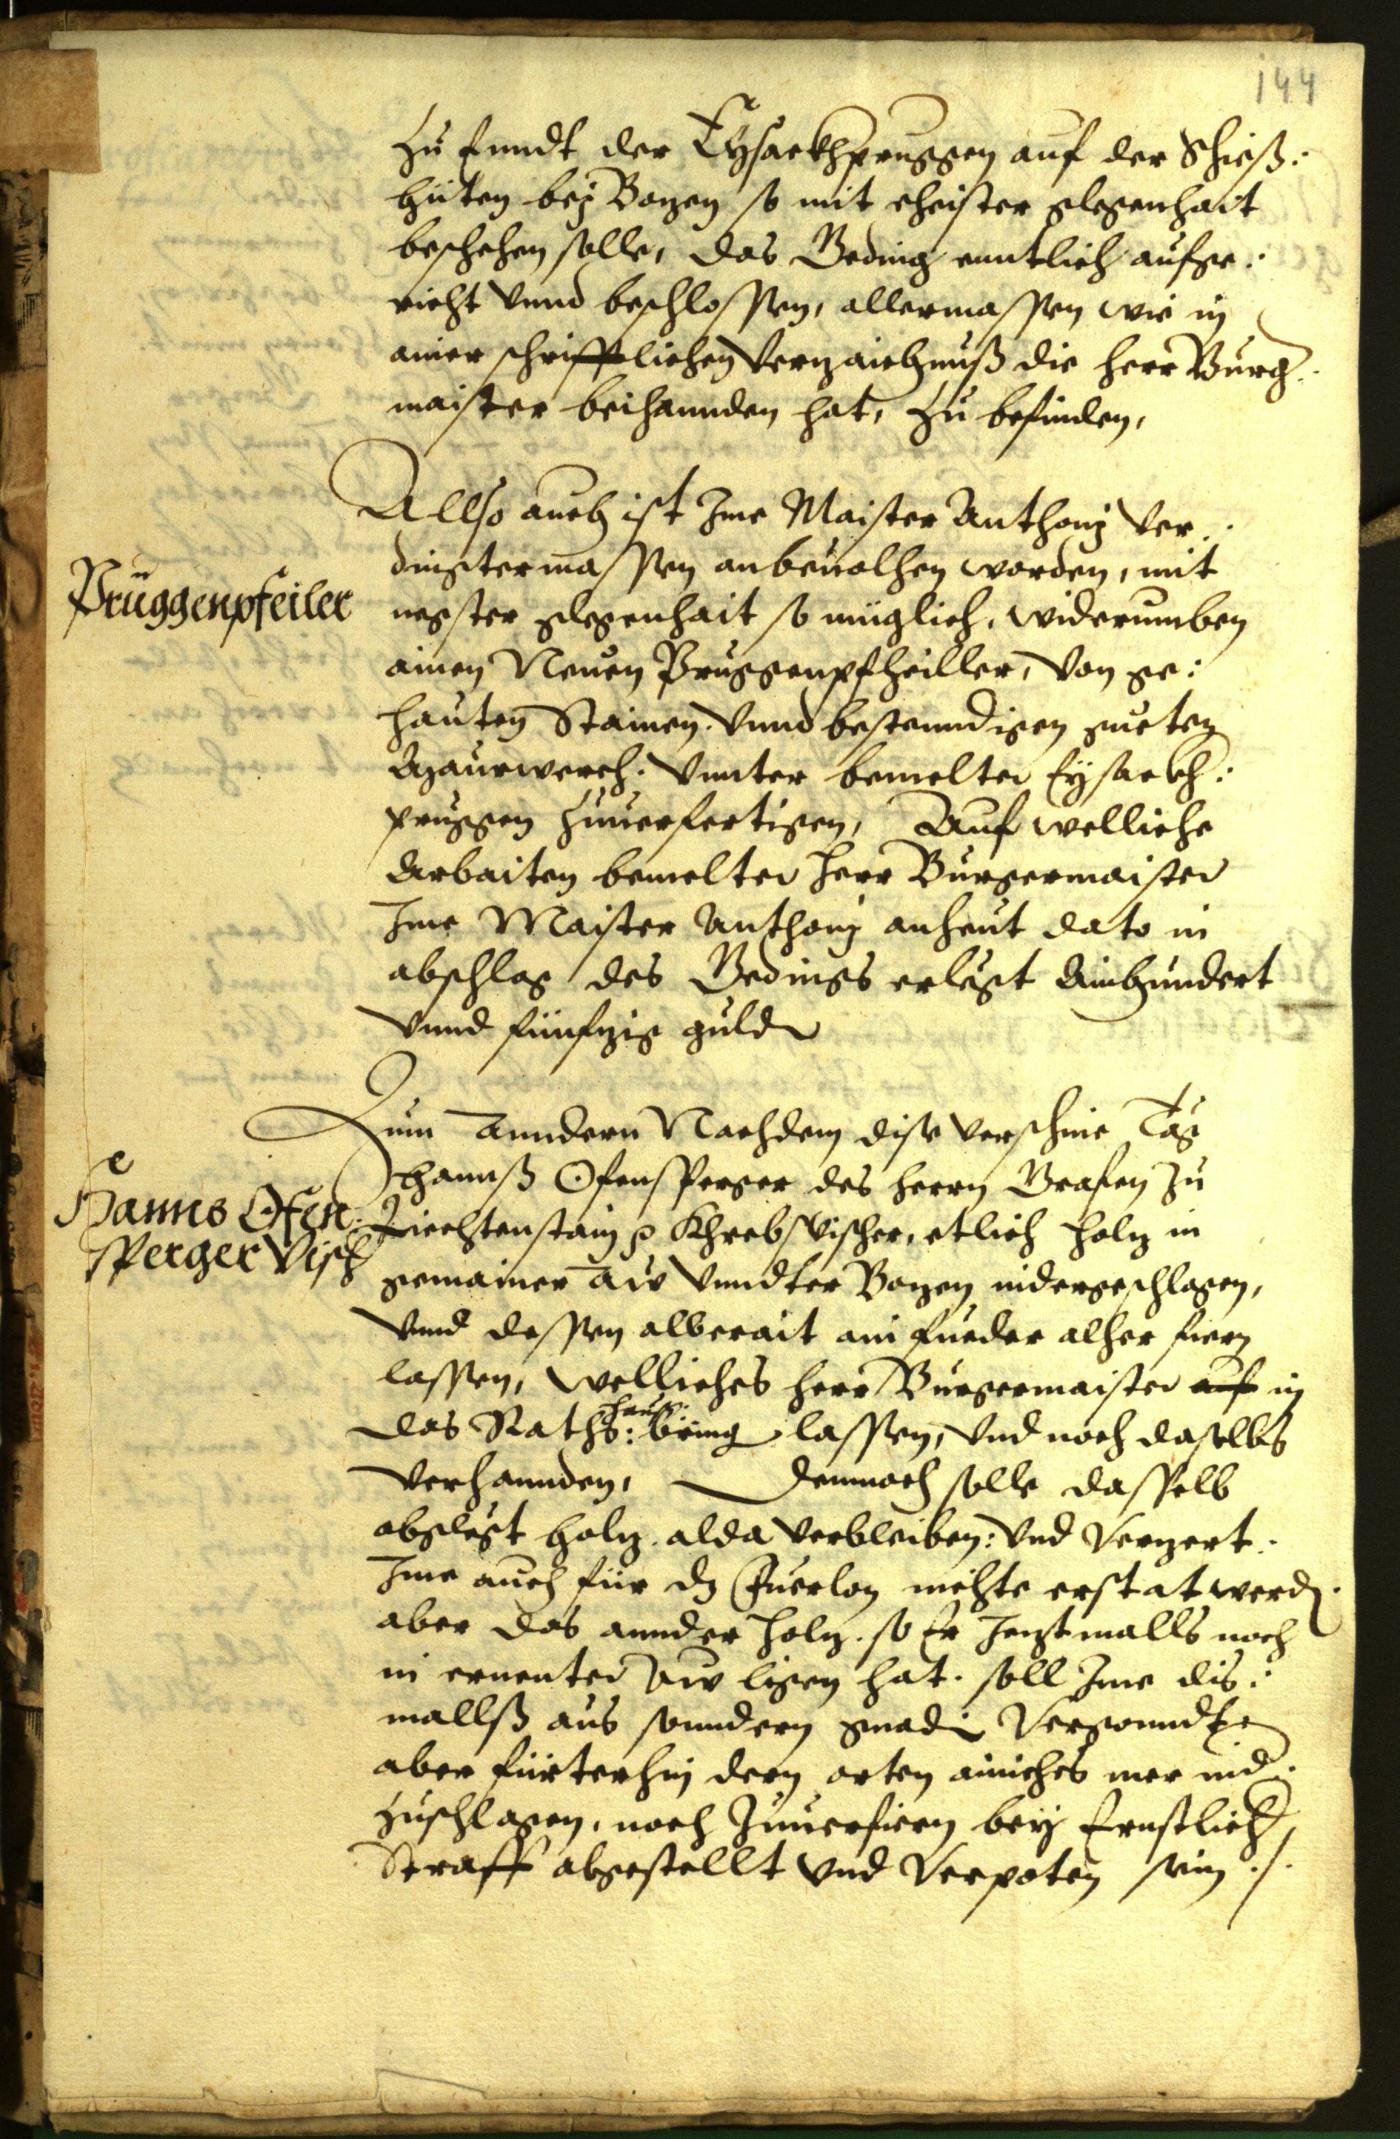 144
zu Enndt der Eysackhpruggen auf der Schieß:
hüten bej Bozen so mit eheister glegenhait
beschehen solle, das Beding enntlich aufge:
richt vnnd beschlossen, allermassen wie in
ainer schrifftlichen Verzaichnuß die herr Burg:
maister beihannden hat, zu befinden,
Allso auch ist Jme Maister Anthonj Ver:
dingtermassen anbeuolhen worden, mit
Pruggenpfeiler
negster glegenhait so müglich, widerumben
ainen Neuen Pruggenpfheiller, von ge:
hauten Stainen vnnd bestenndigen gueten
Maurwerch. vnnter bemelter Eysackh:
pruggen zuuerfertigen, Auf welliche
Arbaiten bemelter herr Burgermaister
Jme Maister Anthonj anheut dato in
abschlag des Bedings erlegt Ainhundert
vnnd fünfzig guld
Zum Anndern Nachdem dise verschine Tag
Hannß Ofensperger des herrn Grafen zu
Hanns Ofen:
sperger Visch
Liechtenstain p Khrebsvischer, etlich holz in
gemainer Aw vnndter Bozen nidergeschlagen,
vnnd dessen alberait ain fueder alher fiern
lassen, welliches herr Burgermaister auf in
das Raths: haus bring lassen, vnd noch daselbs
verhannden, Demnach solle dasselb
abglegt holz alda verbleiben: vnd Verzert
Jme auch für dz Fuerlon nichte erstat werd.
aber das annder holz so Er Jeztmalls noch
in ernenter Aw ligen hat. soll Jme dis:
mallß aus sonndern gnad Vergonndt
aber fürterhin dern orten ainiches mer nid:
zuschlagen, noch zuuerfiern bey Ernstlich
Straff abgestellt vnd Verpoten sein ./.